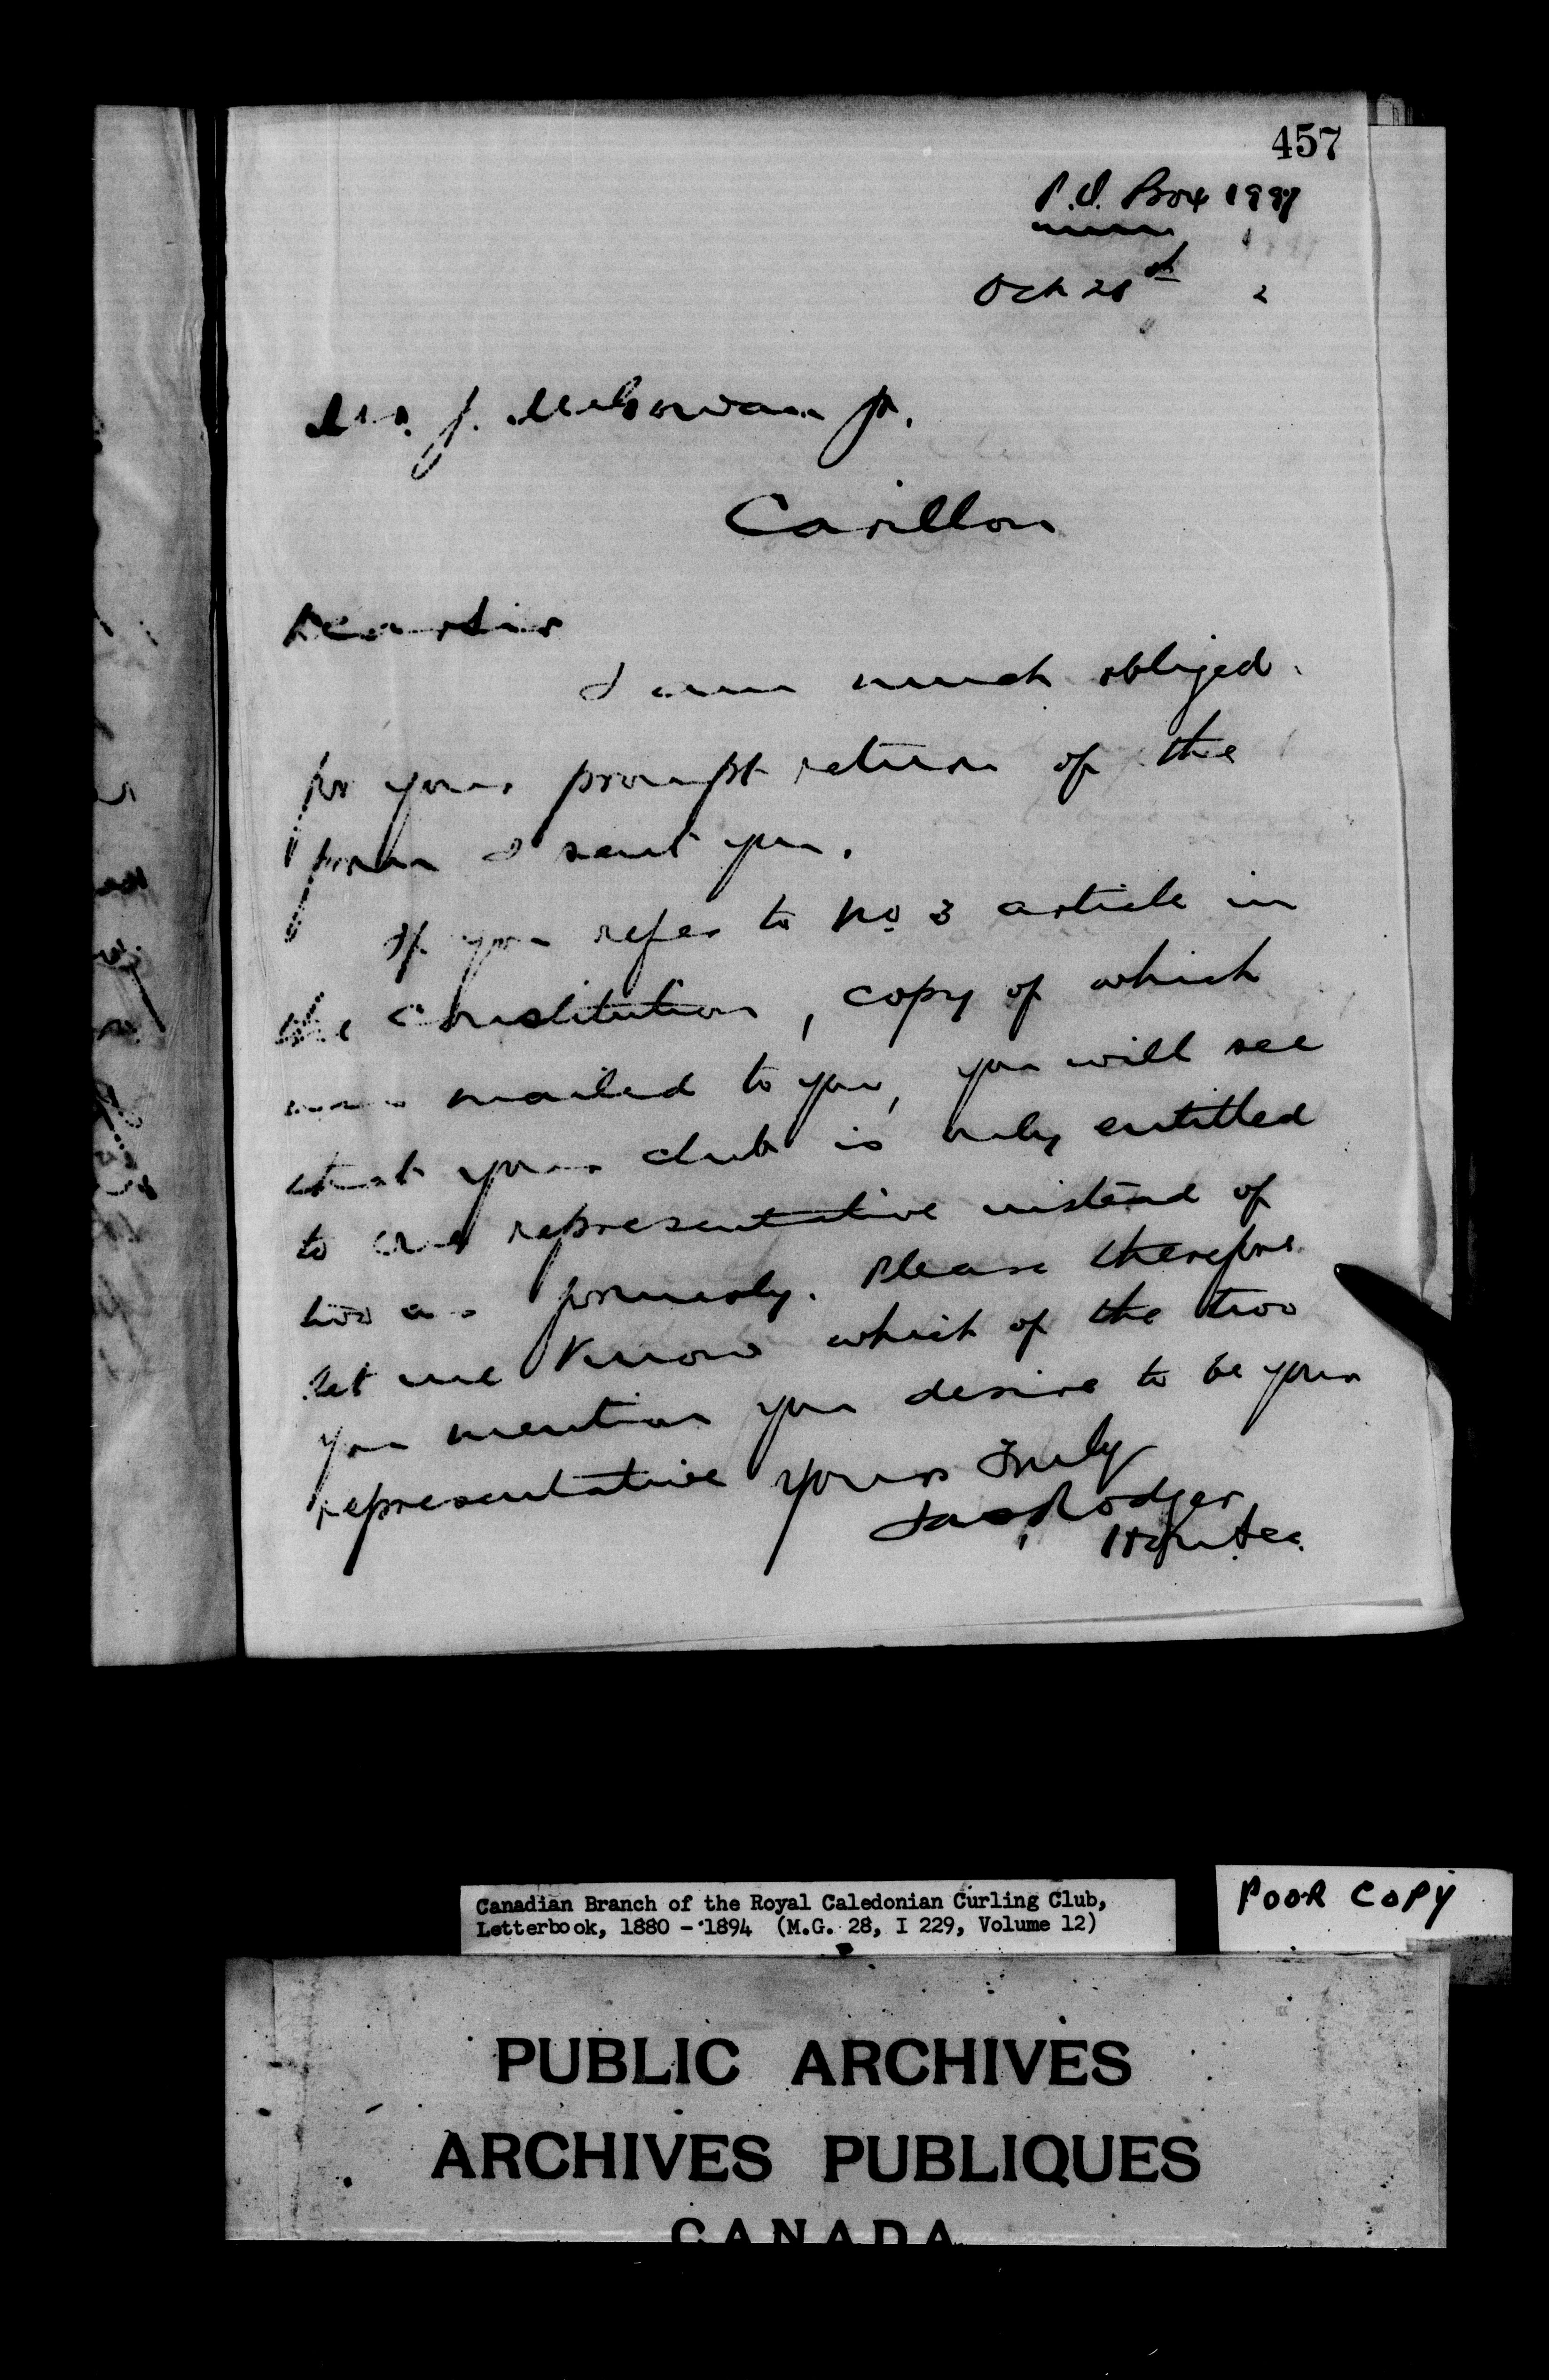 457
P.O. Box 1997
Oct 28th 2
Mr. J. McGowan Jr.
Carillon
Dear Sir
I am much obliged
for your prompt return of the
form I sent you.
If you refer to No 3 article in
the Constitution, copy of which
was mailed to you, you will see
that your club is only entitled
to one representative instead of
two as formerly. Please therefore
let me know which of the two
you mention you desire to be your
representative Yours Truly
Jas Rodger
Hon Sec.
Canadian Branch of the Royal Caledonian Curling Club,
Letterbook, 1880 - 1894 (M.G. 28, I 229, Volume 12)
POOR COPY
PUBLIC ARCHIVES
ARCHIVES PUBLIQUES
CANADA